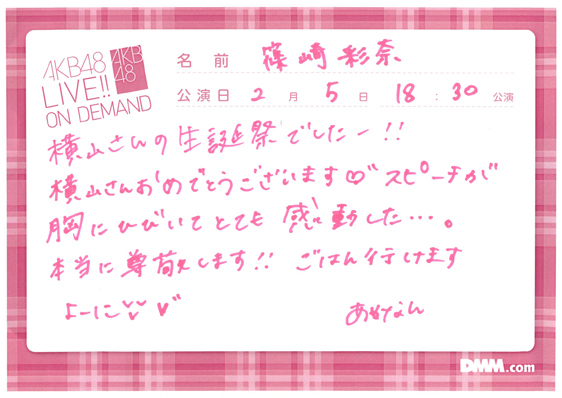 AKB48
LIVE!!
ON DEMAND
AKB
48
名前 篠崎彩奈
公演日 2月5日 18:30公演
横山さんの生誕祭でしたー!!
横山さんおめでとうございます♡゛スピーチが
胸にひびいてとても感動した…。
本当に尊敬します!! ごはん行けます
よーに♡
あやなん
DMM.com